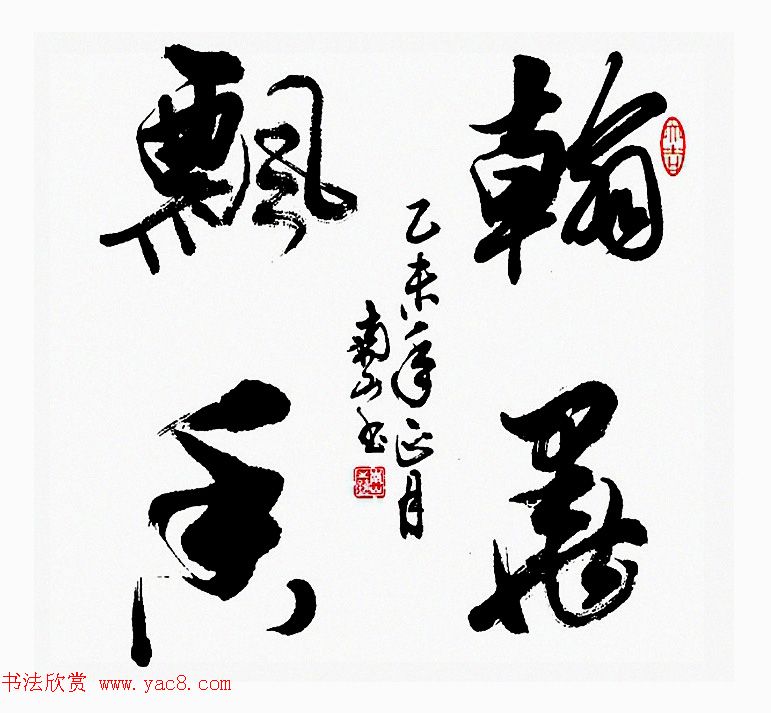 翰墨
飄香
乙未年正月
南山书
大吉
书法欣赏 www.yac8.com